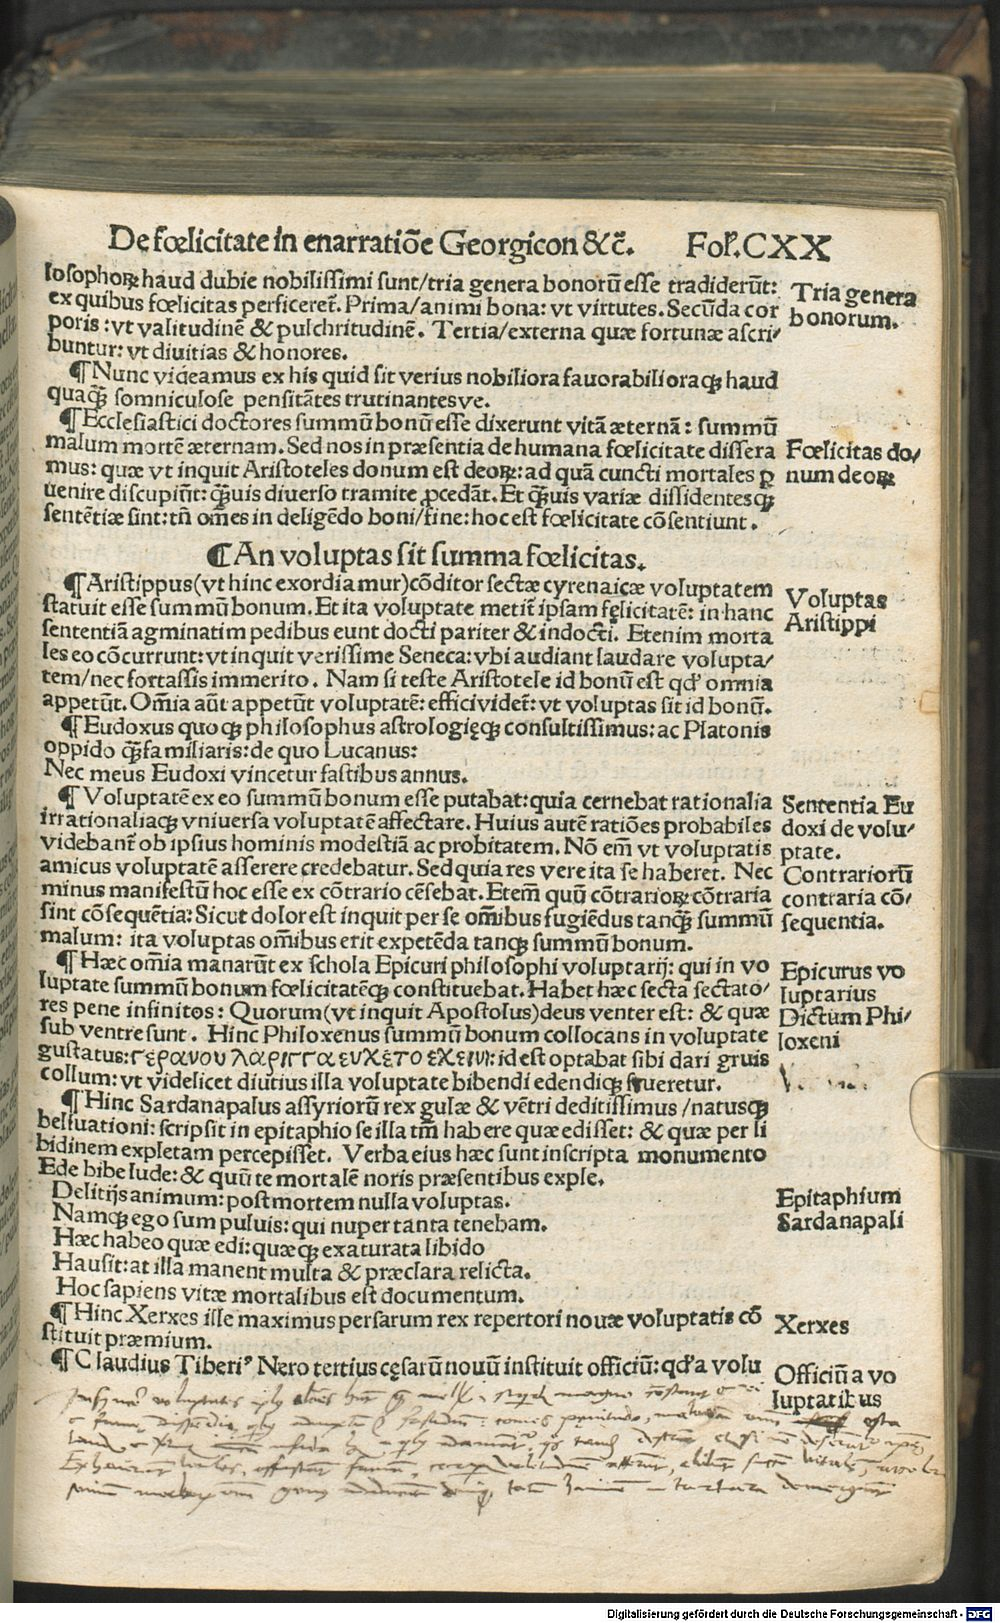 De fœlicitate in enarratiõe Georgicon &c̃. Fol.CXX
losophoꝝ haud dubie nobilissimi sunt/tria genera bonorũ esse tradiderũt:
ex quibus fœlicitas perficeret̃. Prima/animi bona: vt virtutes. Secũda cor
poris:vt valitudinẽ & pulchritudinẽ. Tertia/externa quæ fortunæ ascri/
buntur: vt diuitias & honores.
Tria genera
bonorum.
¶Nunc videamus ex his quid sit verius nobiliora fauorabilioraqꝫ haud
quaqꝫ̃ somniculose pensitãtes trutinantesve.
¶Ecclesiastici doctores summũ bonũ esse dixerunt vitã æternã: summũ
malum mortẽ æternam. Sed nos in præsentia de humana fœlicitate dissera
mus: quæ vt inquit Aristoteles donum est deoꝝ: ad quã cuncti mortales ꝑ
uenire discupiũt: qꝫ̃uis diuerso tramite ꝓcedãt. Et qꝫ̃uis variæ dissidentesqꝫ
sentẽtiæ sint: tñ om̃es in deligẽdo boni/fine: hoc est fœlicitate cõsentiunt.
Fœlicitas do/
num deoꝝ
¶An voluptas sit summa fœlicitas.
¶Aristippus(vt hinc exordia mur)cõditor sectæ cyrenaicæ voluptatem
statuit esse summũ bonum. Et ita voluptate metit̃ ipsam fęlicitatẽ: in hanc
sententiã agminatim pedibus eunt docti pariter & indocti. Etenim morta
les eo cõcurrunt: vt inquit verissime Seneca: vbi audiant laudare volupta/
tem/nec fortassis immerito. Nam si teste Aristotele id bonũ est qđ omnia
appetũt. Om̃ia aũt appetũt voluptatẽ: effici videt̃: vt voluptas sit id bonũ.
Voluptas
Aristippi
¶Eudoxus quoqꝫ philosophus astrologięqꝫ consultissimus: ac Platonis
oppido qꝫ̃familiaris: de quo Lucanus:
Nec meus Eudoxi vincetur fastibus annus.
¶Voluptatẽ ex eo summũ bonum esse putabat: quia cernebat rationalia
irrationaliaqꝫ vniuersa voluptatẽ affectare. Huius autẽ ratiões probabiles
videbant̃ ob ipsius hominis modestiã ac probitatem. Nõ em̃ vt voluptatis
amicus voluptatẽ asserere credebatur. Sed quia res vere ita se haberet. Nec
minus manifestũ hoc esse ex cõtrario cẽsebat. Etem̃ quũ cõtrarioꝝ cõtraria
sint cõsequẽtia: Sicut dolor est inquit per se om̃ibus fugiẽdus tanqꝫ̃ summũ
malum: ita voluptas om̃ibus erit expetẽda tanqꝫ̃ summũ bonum.
Sententia Eu
doxi de volu/
ptate.
Contrariorũ
contraria cõ/
sequentia.
¶Hæc om̃ia manarũt ex schola Epicuri philosophi voluptarij: qui in vo
luptate summũ bonum fœlicitatẽqꝫ constituebat. Habet hæc secta sectato/
res pene infinitos: Quorum(vt inquit Apostolus)deus venter est: & quæ
sub ventre sunt. Hinc Philoxenus summũ bonum collocans in voluptate
gustatus: γερανου λαριγγα ευχετο εχειν: id est optabat sibi dari gruis
collum: vt videlicet diutius illa voluptate bibendi edendiqꝫ frueretur.
Epicurus vo
luptarius
Dictum Phi/
loxeni
¶Hinc Sardanapalus assyriorũ rex gulæ & vẽtri deditissimus/natusqꝫ
belluationi: scripsit in epitaphio se illa tm̃ habere quæ edisset: & quæ per li
bidinem expletam percepisset. Verba eius hæc sunt inscripta monumento
Ede bibe lude: & quũ te mortalẽ noris præsentibus exple.
Delitijs animum: post mortem nulla voluptas.
Namqꝫ ego sum puluis: qui nuper tanta tenebam.
Hæc habeo quæ edi: quæqꝫ exaturata libido
Hausit: at illa manent multa & præclara relicta.
Hoc sapiens vitæ mortalibus est documentum.
Epitaphium
Sardanapali
¶Hinc Xerxes ille maximus persarum rex repertori nouæ voluptatis cõ
stituit præmium.
Xerxes
¶Claudius Tiberiꝰ Nero tertius cęsarũ nouũ instituit officiũ: qđ a volu
Officiũ a vo
luptatibus
Digitalisierung gefördert durch die Deutsche Forschungsgemeinschaft - DFG